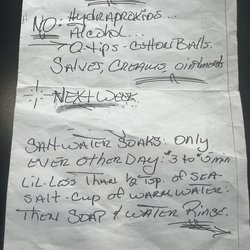 NO: Hydraproxids...
Alcohol...
Q-tips - Cotton Balls.
Salves, Creams, ointments
NEXT WEEK
SALT-WATER SOAKS: ONLY
EVER OTHER DAY: "3 to 5 min
LiL-LESS THAN 1/2 TSP. OF SEA-
SALT - CUP OF WARM WATER:
THEN SOAP & WATER RINSE.